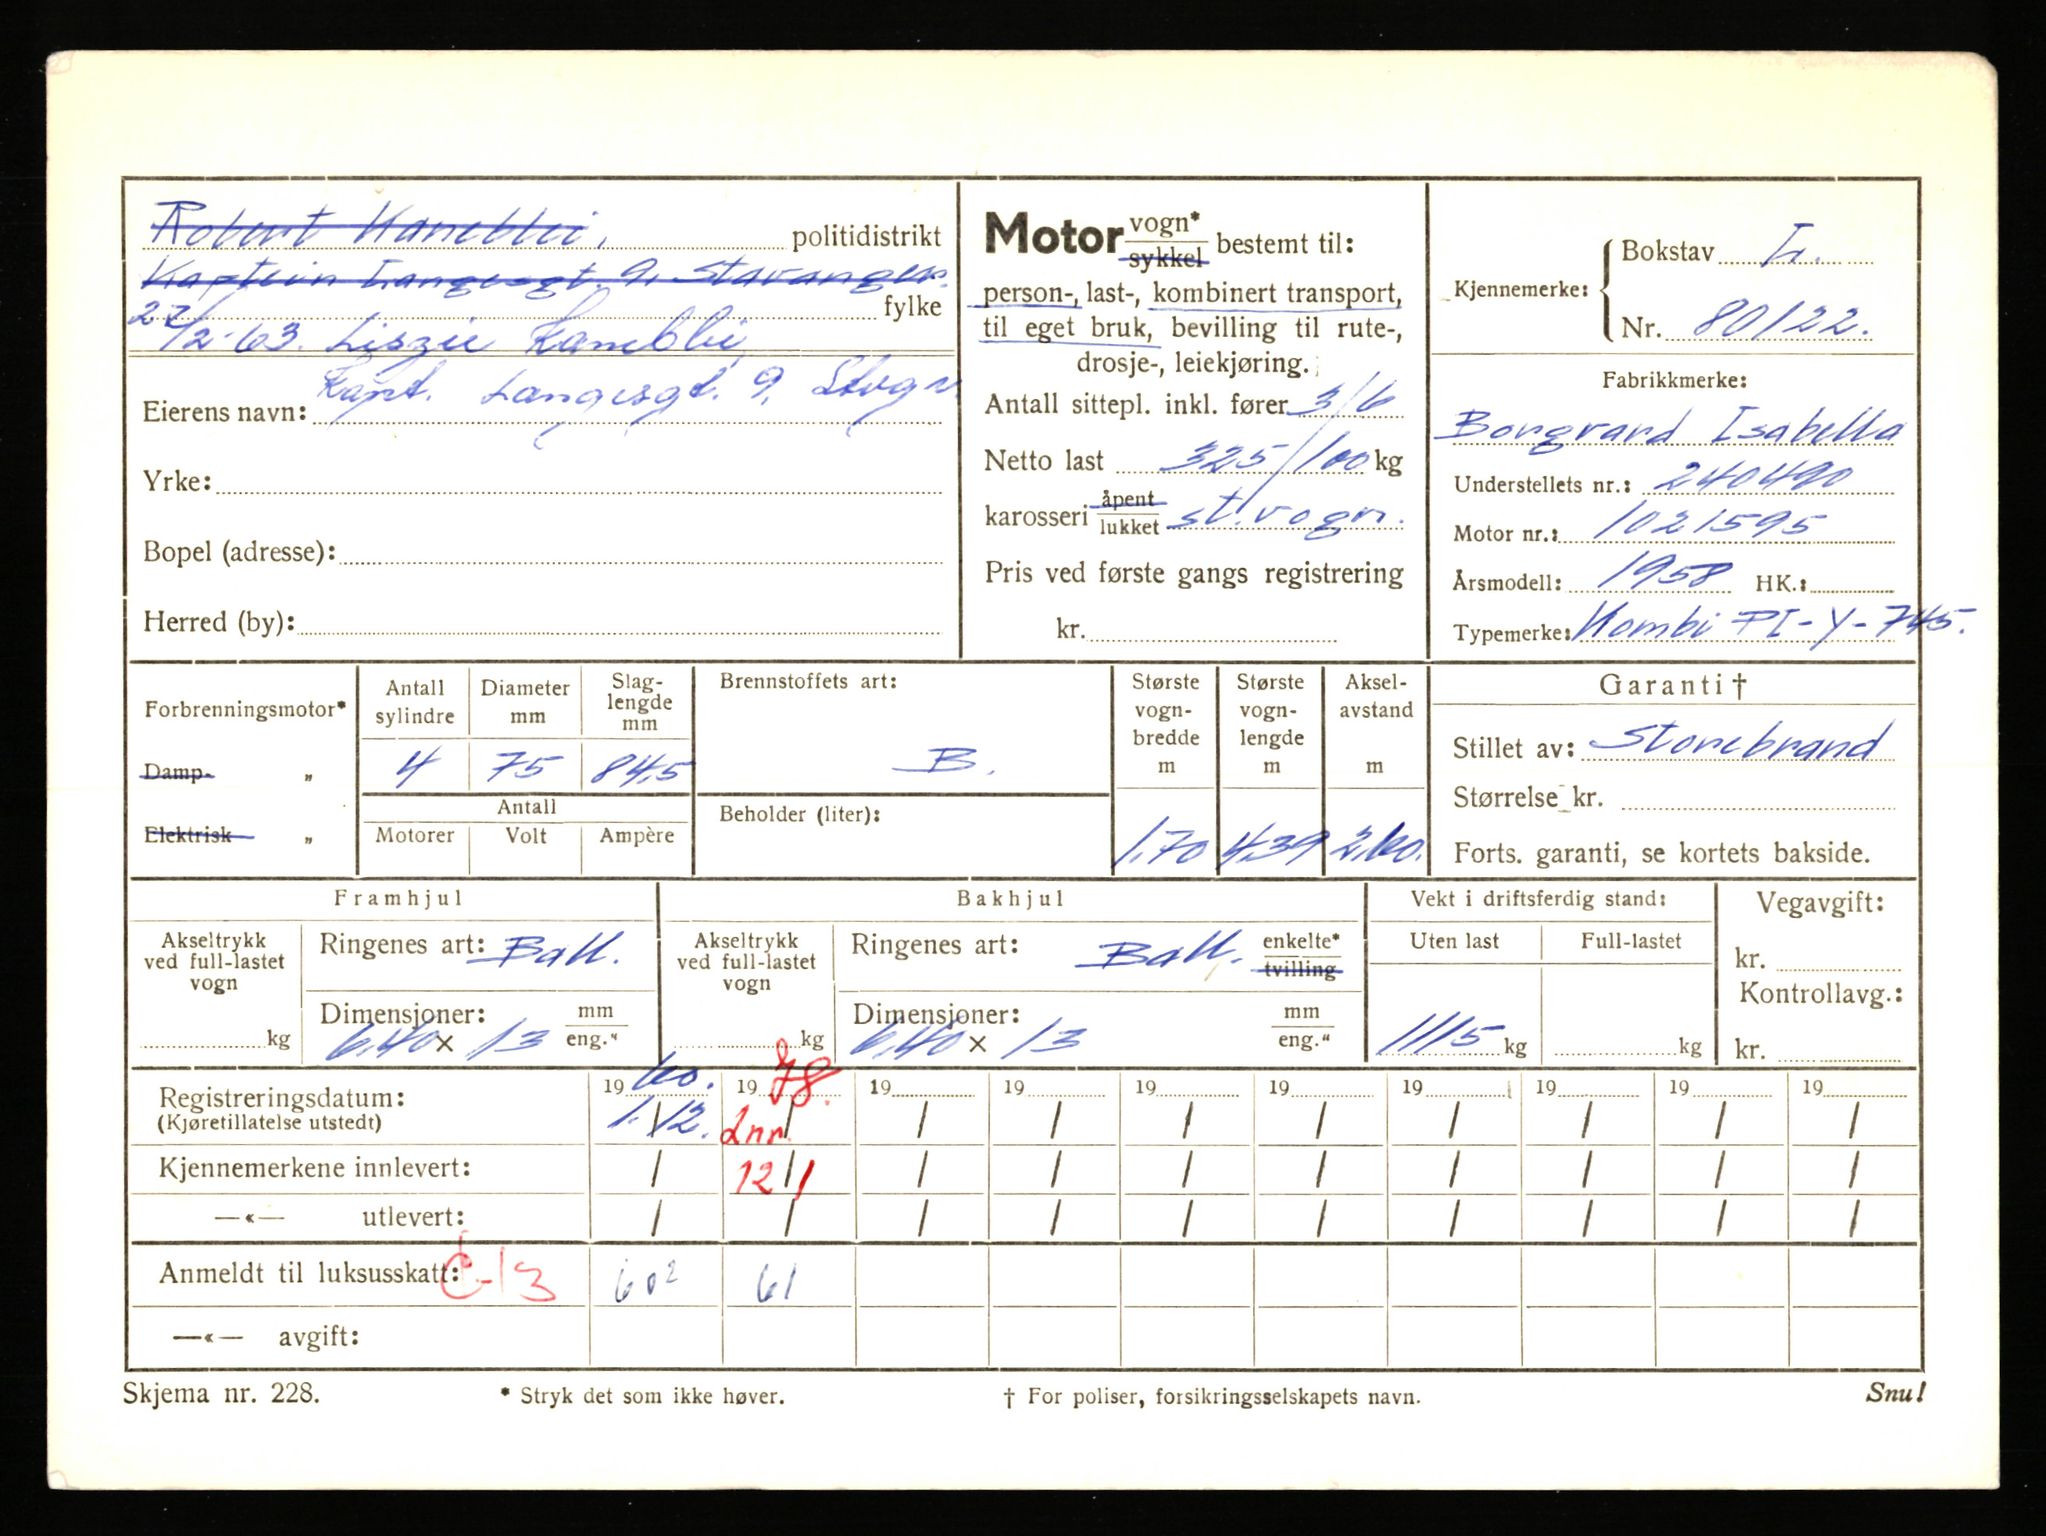 Robert Kaneblei, politidistrikt
Kaptein Langesgt. 9, Stavanger.
fylke
27/2-63. Liszie Kaneblei
Kapt. Langesgt. 9, Stvgr.
Eierens navn:
Yrke:
Bopel (adresse):
Herred (by):
Motor vogn* sykkel bestemt til:
person-, last-, kombinert transport,
til eget bruk, bevilling til rute-,
drosje-, leiekjøring.
Antall sittepl. inkl. fører 3/6
Netto last 325/100 kg
karosseri åpent lukket st.vogn.
Pris ved første gangs registrering
kr.
Kjennemerke: Bokstav L.
Nr. 80122.
Fabrikkmerke:
Borgvard Isabella
Understellets nr.: 240490
Motor nr.: 1021595
Årsmodell: 1958 HK.:
Typemerke: Kombi PI-Y-745.
Forbrenningsmotor*
Damp- „
Elektrisk „
Antall sylindre Diameter mm Slaglengde mm
4 75 84,5
Antall
Motorer Volt Ampère
Brennstoffets art:
B.
Beholder (liter):
Største vogn-bredde m Største vogn-lengde m Aksel-avstand m
1,70 4,39 2,60.
Garanti †
Stillet av: Storebrand
Størrelse kr.
Forts. garanti, se kortets bakside.
Framhjul
Akseltrykk ved full-lastet vogn
kg
Ringenes art: Ball.
Dimensjoner: mm eng."
6,40 x 13
Bakhjul
Akseltrykk ved full-lastet vogn
kg
Ringenes art: Ball. enkelte* tvilling
Dimensjoner: mm eng."
6,40 x 13
Vekt i driftsferdig stand:
Uten last Full-lastet
1115 kg kg
Vegavgift:
kr.
Kontrollavg.:
kr.
19 60. 19 78. 19 19 19 19 19 19 19 19
Registreringsdatum: 1./12. Inn
(Kjøretillatelse utstedt) / / / / / / / /
Kjennemerkene innlevert: / 12/1 / / / / / / / /
—«— utlevert: / / / / / / / / / /
Anmeldt til luksusskatt: C-13 60² 61
—«— avgift:
Skjema nr. 228. * Stryk det som ikke høver. † For poliser, forsikringsselskapets navn. Snu!